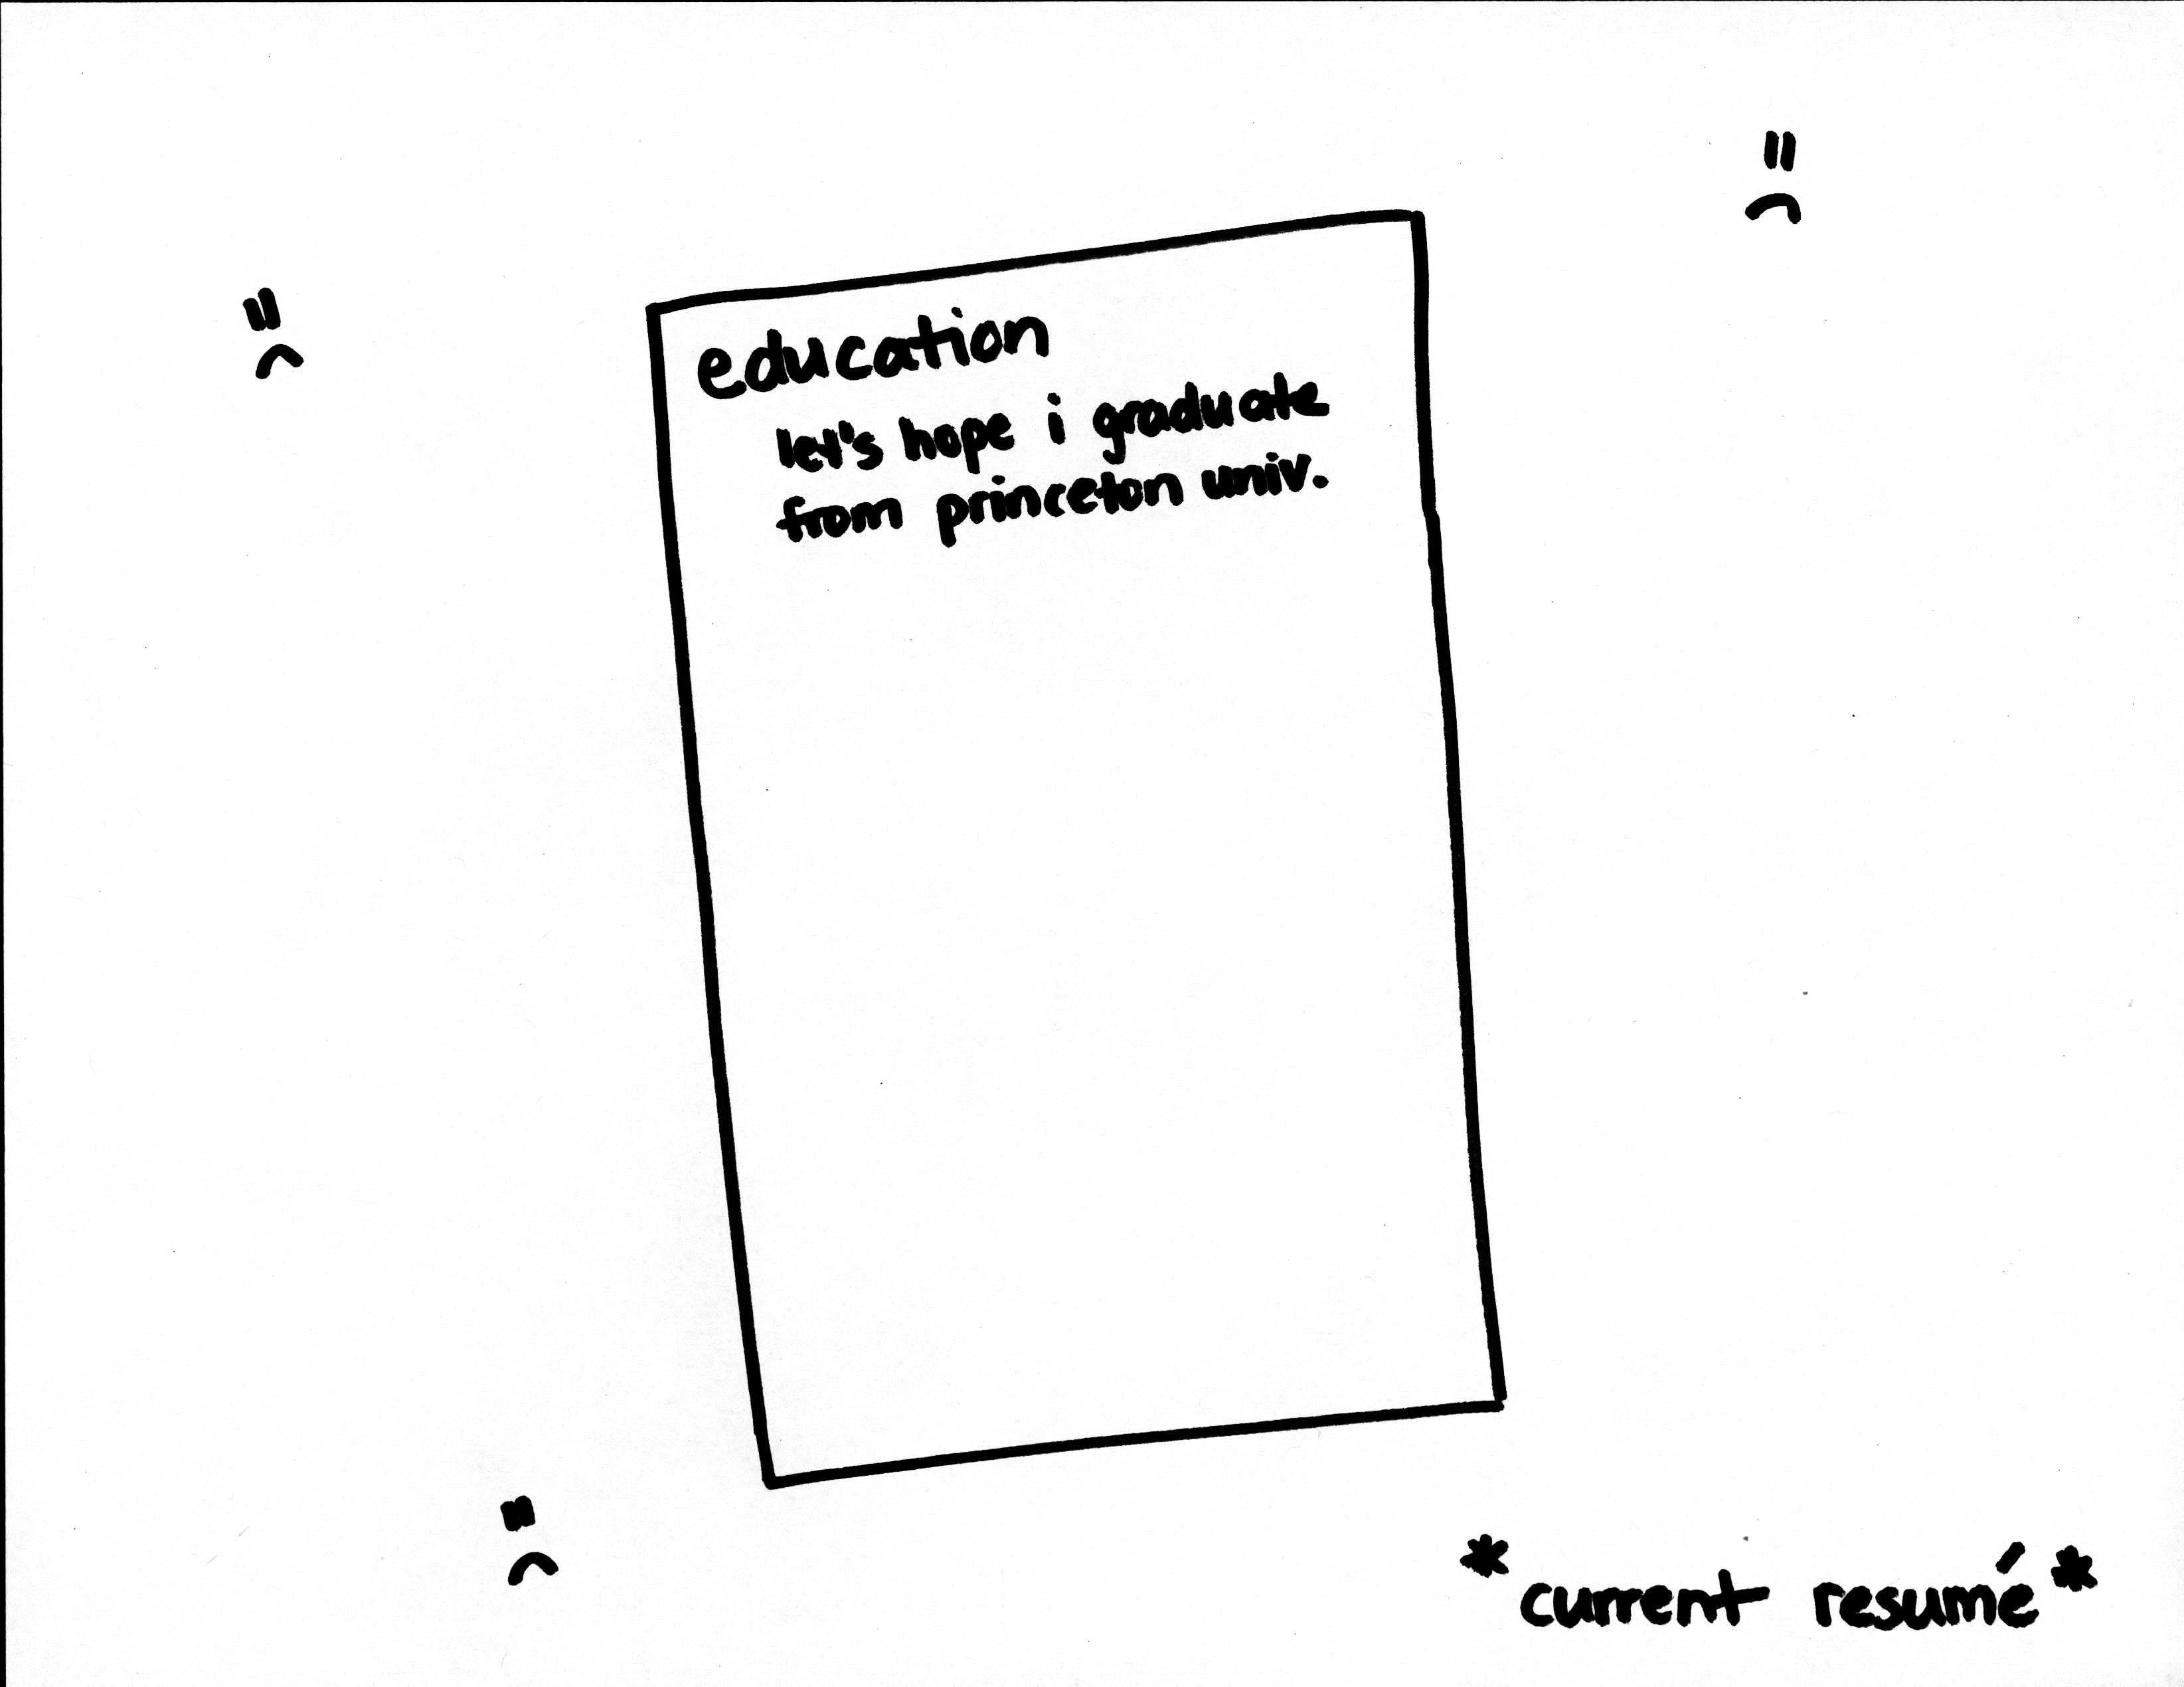 education
let's hope i graduate
from princeton univ.
*current resumé*